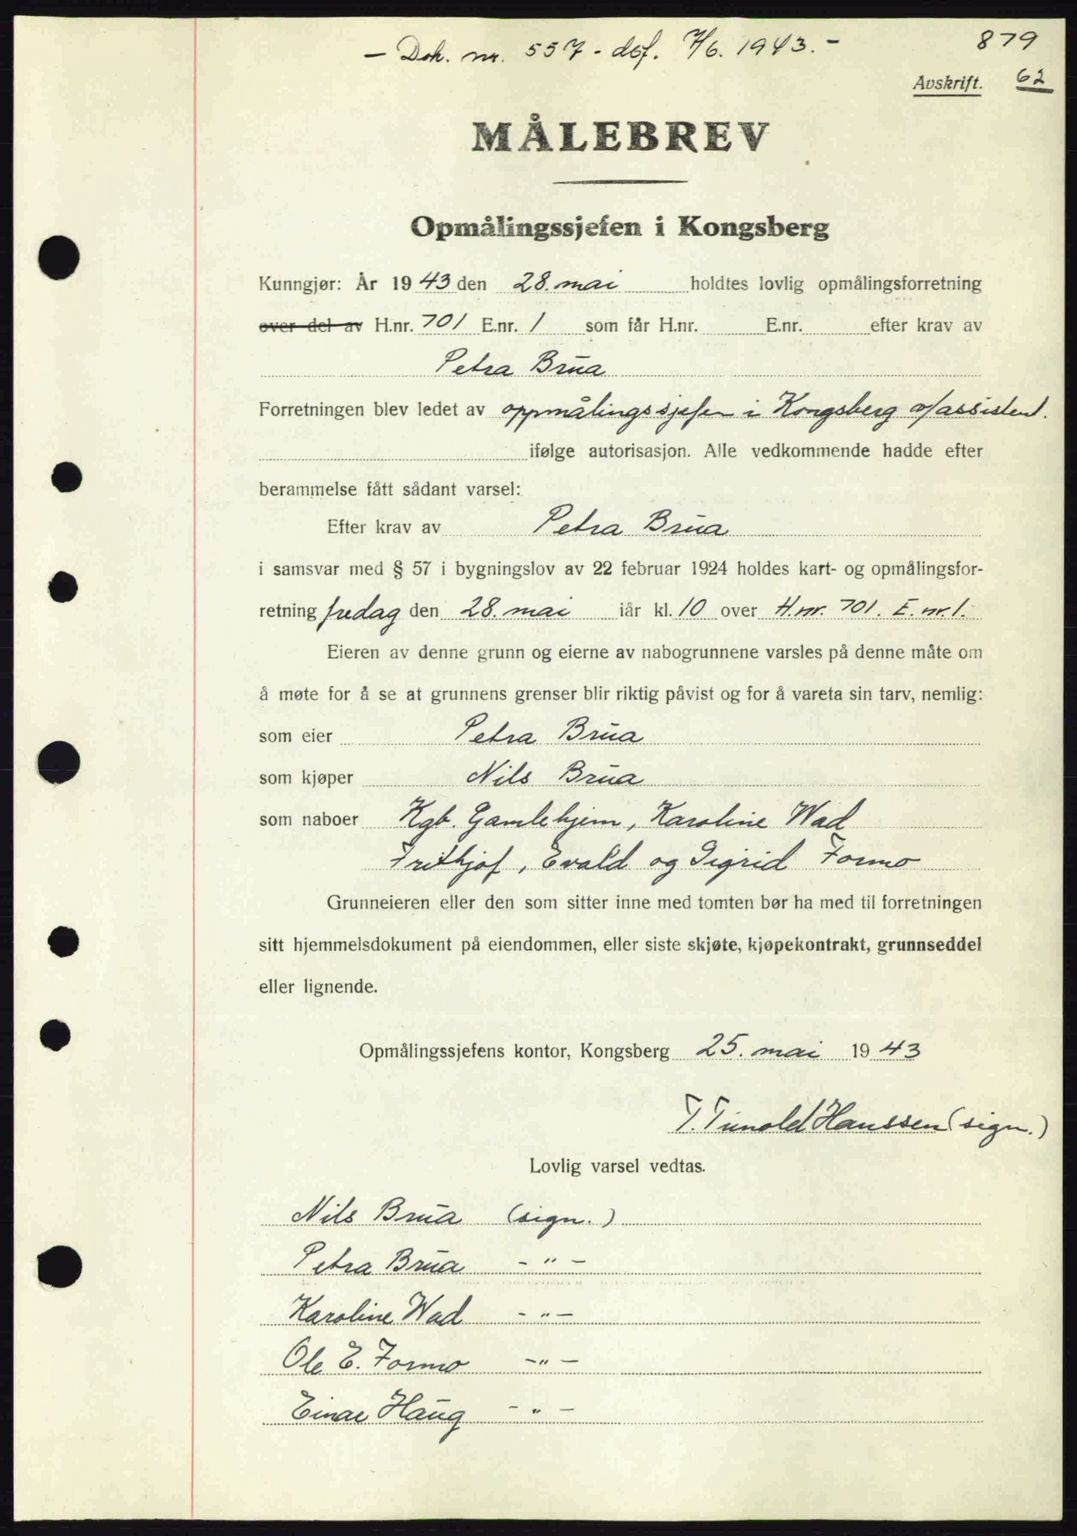 - Dok. nr. 557 - dbf. 7/6. 1943. -
879
Avskrift. 62
MÅLEBREV
Opmålingssjefen i Kongsberg
Kunngjør: År 1943 den 28. mai holdtes lovlig opmålingsforretning
over del av H.nr. 701 E.nr. 1 som får H.nr. E.nr. efter krav av
Petra Brua
Forretningen blev ledet av oppmålingssjefen i Kongsberg v/assistent.
ifølge autorisasjon. Alle vedkommende hadde efter
berammelse fått sådant varsel:
Efter krav av Petra Brua
i samsvar med § 57 i bygningslov av 22 februar 1924 holdes kart- og opmålingsfor-
retning fredag den 28. mai iår kl. 10 over H.nr. 701. E.nr. 1.
Eieren av denne grunn og eierne av nabogrunnene varsles på denne måte om
å møte for å se at grunnens grenser blir riktig påvist og for å vareta sin tarv, nemlig:
som eier Petra Brua
som kjøper Nils Brua
som naboer Kgb. Gamlehjem, Karoline Wad
Frithjof, Evald og Sigrid Formo
Grunneieren eller den som sitter inne med tomten bør ha med til forretningen
sitt hjemmelsdokument på eiendommen, eller siste skjøte, kjøpekontrakt, grunnseddel
eller lignende.
Opmålingssjefens kontor, Kongsberg 25. mai 1943
T. Tunold Hanssen (sign.)
Lovlig varsel vedtas.
Nils Brua (sign.)
Petra Brua - " -
Karoline Wad - " -
Ole E. Formo - " -
Einar Haug - " -